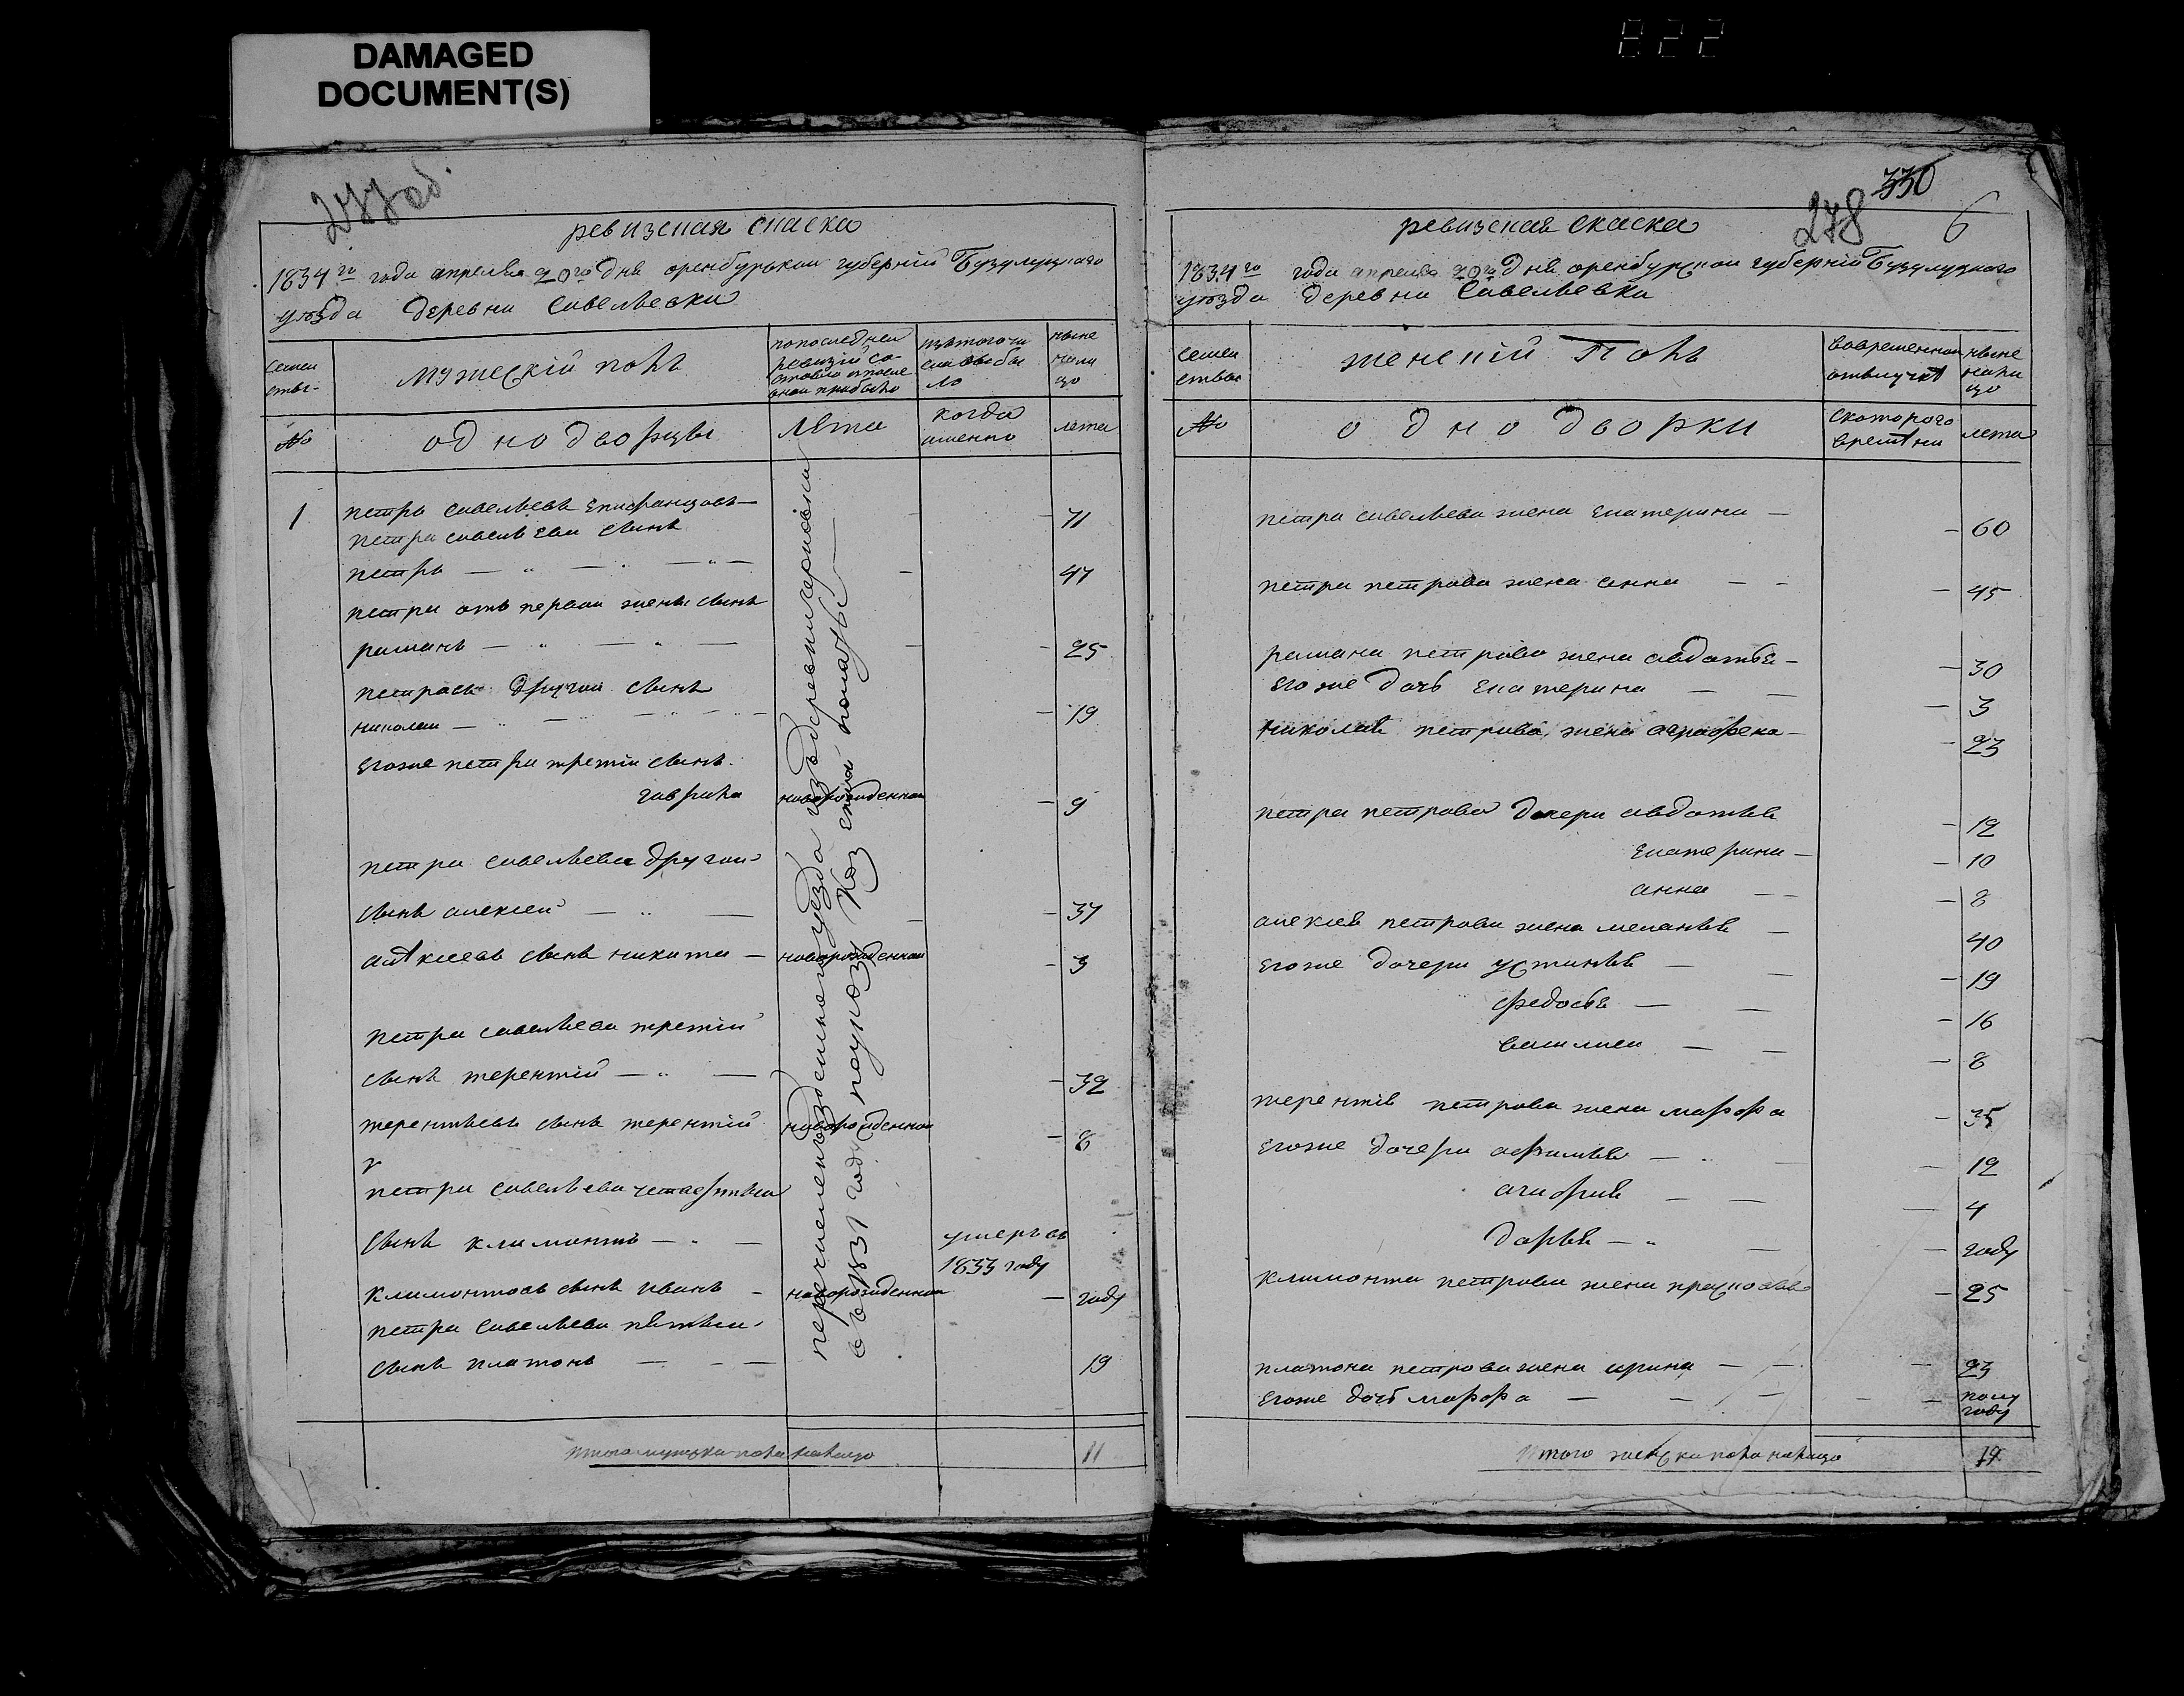 DAMAGED
DOCUMENT(S)
822
277 об.
ревизская скаска
1834го года апреля 20го дня оренбурькои губернiи Бузулуцкаго
уезда деревни Савельевки
семеи
ствы
мужескiй полъ
попоследнеи
ревизiй со
стояло ипосле
онои прибыло
изтогочи
сла выбы
ло
ныне
нали
цо
№
однодворцы
лета
когда
именно
лета
1
петръ савельевъ Епифанцовъ — 71
петра савельева сынъ
петръ — 47
петра отъ первои жены сынъ
раманъ — 25
петровъ другои сынъ
николаи — 19
Егоже петра третiи сынъ
гаврила новорожденнои — 9
петра савельева другои
сынъ алексеи — 37
алексеевъ сынъ никита — новорожденнои — 3
петра савельева третiи
сынъ терентiй — 32
терентьевъ сынъ терентiй новорожденнои — 8
петра савельева четвертыи
сынъ климонтъ — умеръ въ
1833 году
климонтовъ сынъ иванъ — новорожденнои — году
петра савельева пятыи
сынъ платонъ — 19
перечисленъ уезда изъ деревни
в 1831 году поуказу Каз
Итого мужска пола налицо 11
330
278
6
ревизская скаска
1834го года апреля 20го дня оренбурскои губернiи Бузулуцкого
уезда деревни Савельевки
семеи
ствы
женскiй Полъ
вовременнои
отлучке
ныне
нали
цо
№
однодворки
скоторого
времени
лета
петра савельева жена Екатерина — 60
петра петрова жена анна — 45
рамана петрова жена авдотья — 30
Егоже дочь Екатерина — 3
николая петрова жена аграфена — 23
петра петрова дочери авдотья — 12
Екатерина — 10
анна — 8
алексея петрова жена меланья — 40
Егоже дочери устинья — 19
федосья — 16
василиса — 8
терентiя петрова жена марфа — 35
Егоже дочери афимья — 12
— 4
дарья — году
климонта петрова жена — 25
платона петрова жена ирина — 23
Егоже дочь марфа — полу
году
Итого женска пола налицо 19